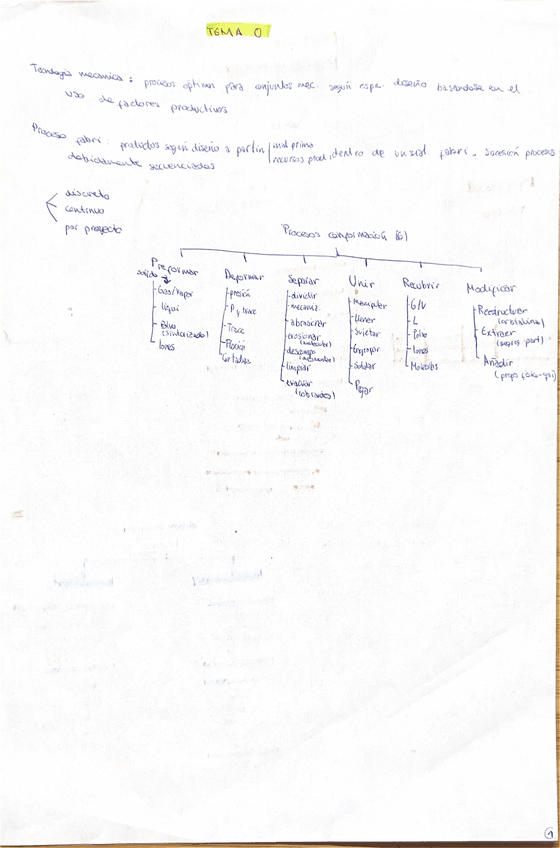 TEMA 0
Tecnología mecanica: procesos optimos para conjuntos mec. según espe. diseño basandose en el
uso de factores productivos
Proceso fabri: productos según diseño a partir mat prima
recursos prod. dentro de un sist. fabri. sucesión procesos
debidamente secuenciados
discreto
continuo
por proyecto
Procesos conformación (6)
Preformar
solido
Gas/vapor
liqui
Polvo
(sinterizado)
Iones
Deformar
presión
P y trac
Tracc
Flexión
Cortadas
Separar
dividir
mecaniz.
abrasivar
erosionar
(molecular)
limpiar
evacuar
(sobrantes)
Unir
Manipular
Llenar
Sujetar
Engrapar
Soldar
Pegar
Recubrir
G/V
L
Polvo
Iones
Modificar
Reestructurar
(cristalina)
Extraer
(segreg. part)
Añadir
(prop fisko-qui)
1